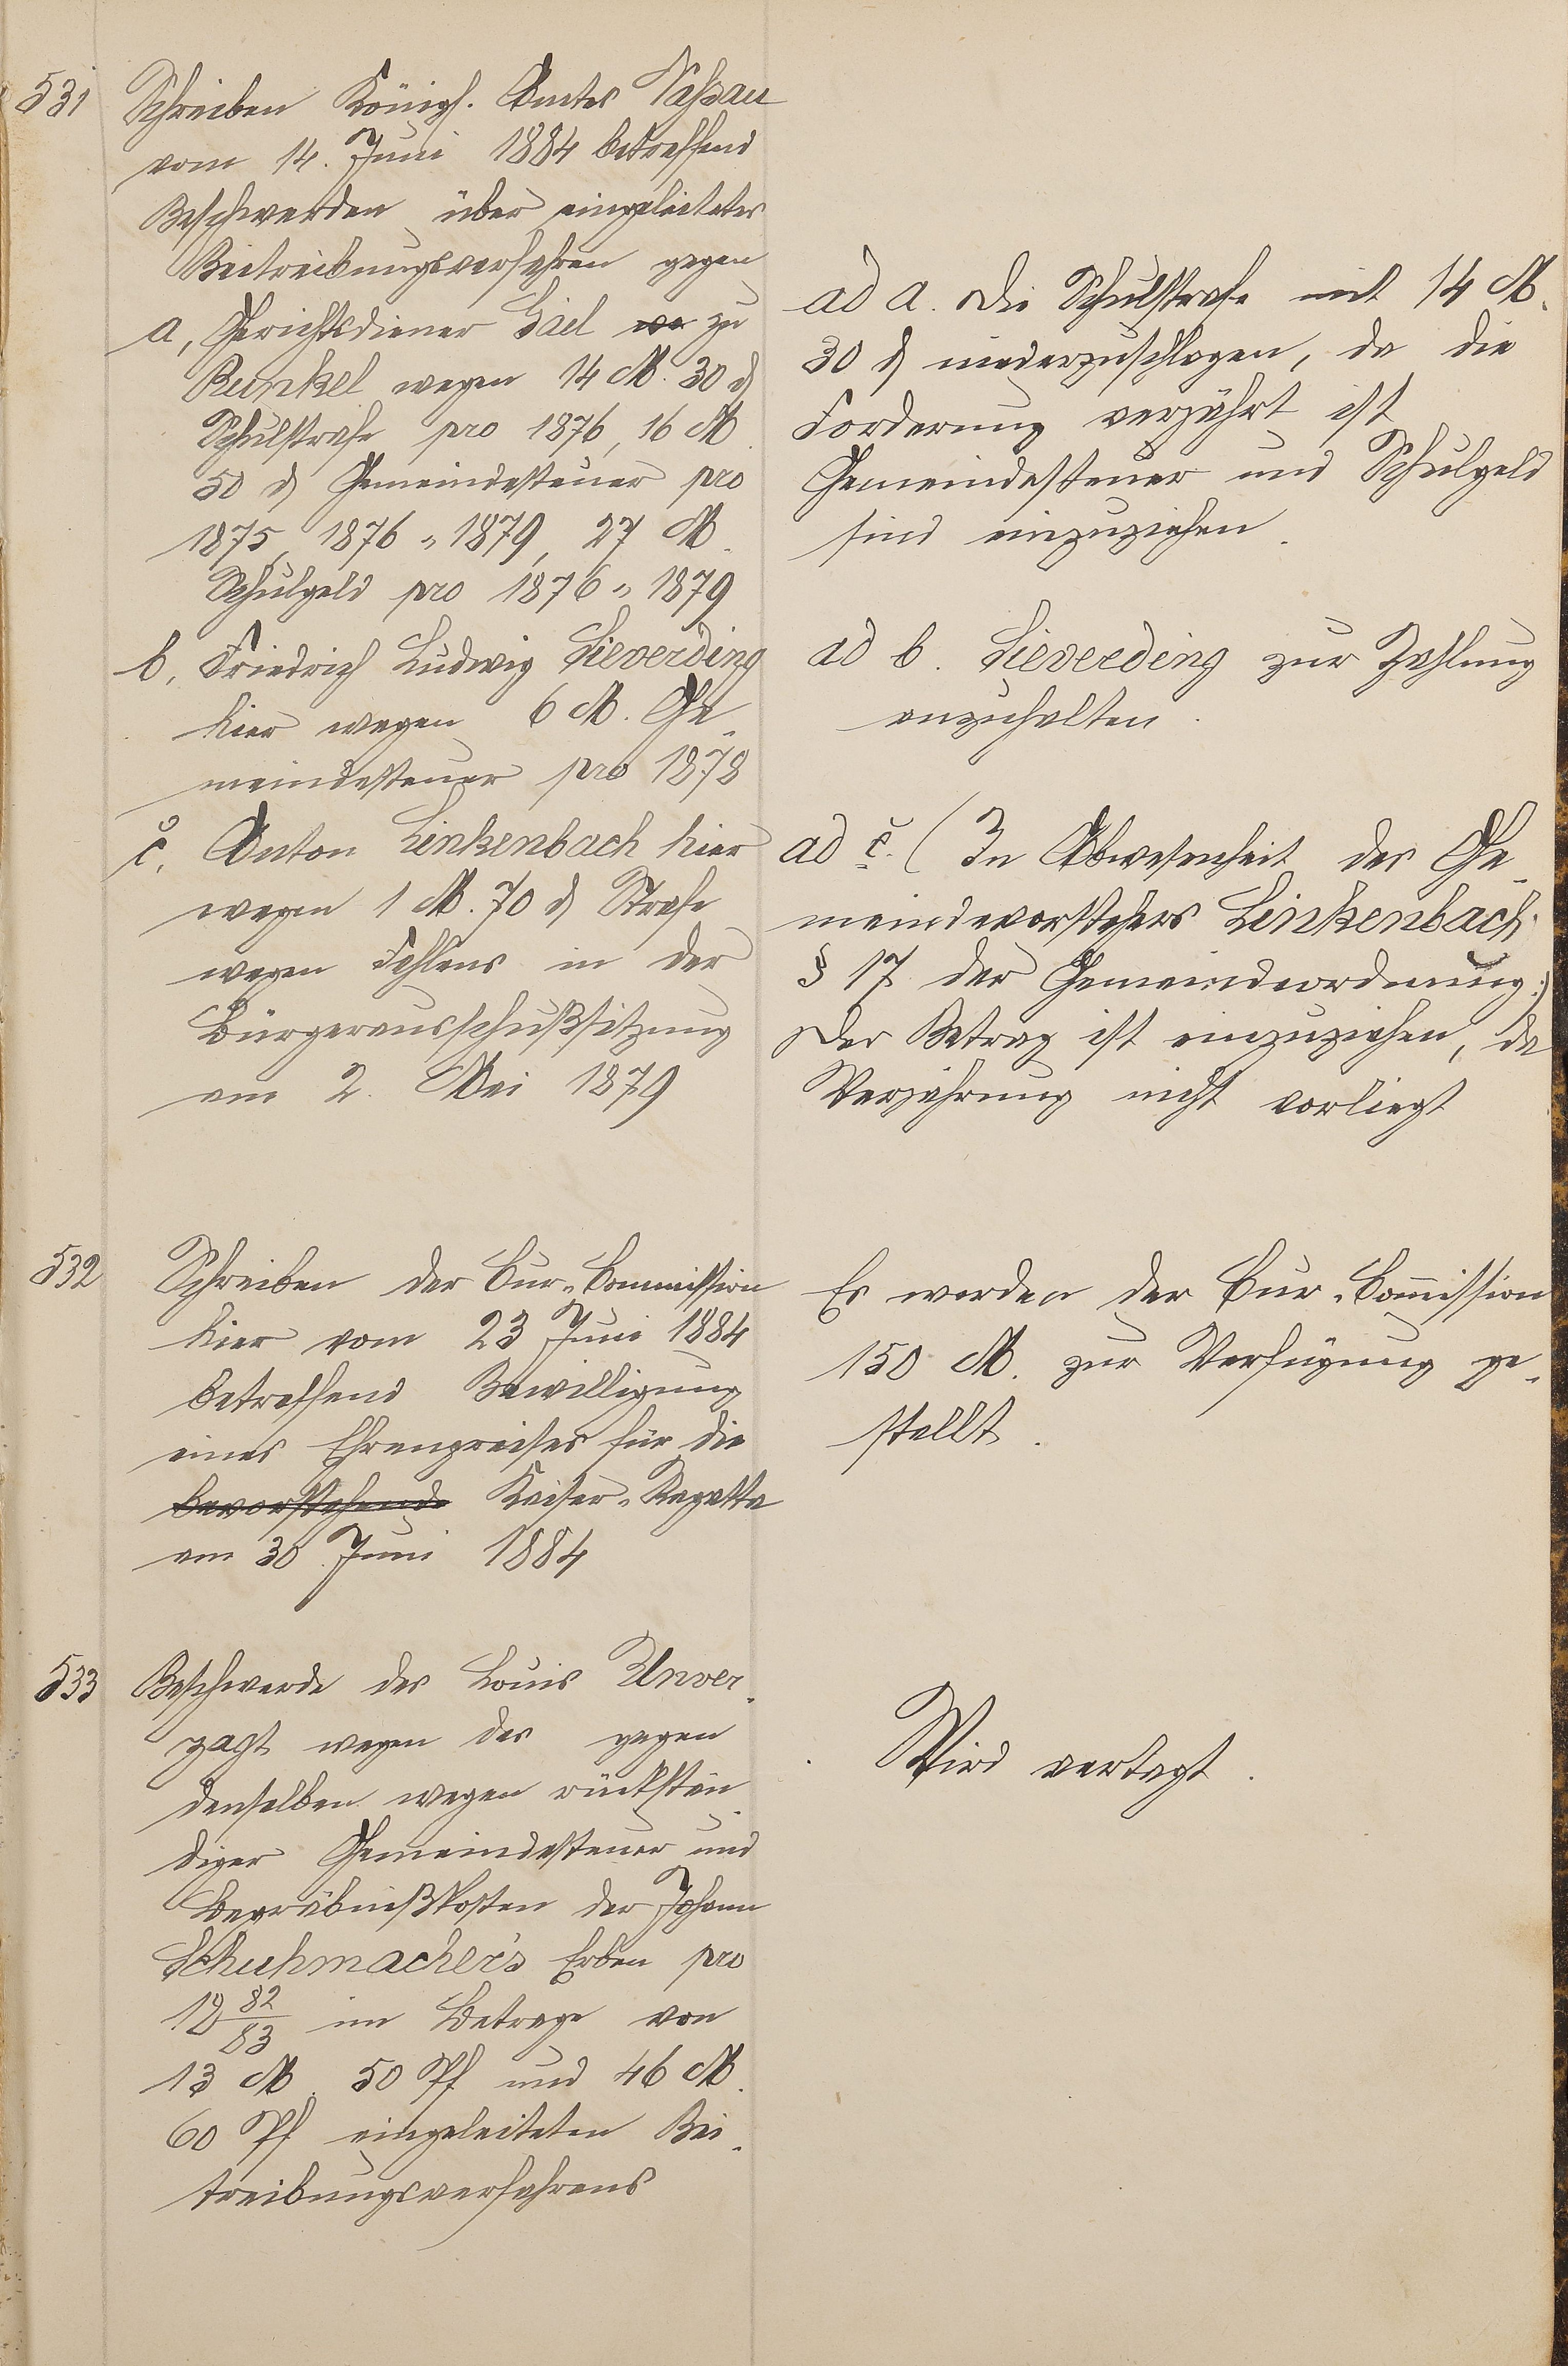 531
Schreiben Königl. Amtes Nassau
vom 14. Juni 1884 betreffend
Beschwerden über eingeleitetes
Beitreibungsverfahren gegen
a, Gerichtsdiener Gael zu
Runkel wegen 14 M. 30 ₰
Schulstrafe pro 1876, 16 M
50 ₰ Gemeindesteuer pro
1875, 1876 „ 1879, 27 M.
Schulgeld pro 1876 „ 1879
b, Friedrich Ludwig Lieverding
hier wegen 6 M. Ge-
meindesteuer pro 1878
c, Anton Linkenbach hier
wegen 1 M. 70 ₰ Strafe
wegen Fehlens in der
Bürgerausschußsitzung
am 2. Mai 1879
ad a. Die Schulstrafe mit 14 M.
30 ₰ niederzuschlagen, da die
Forderung verjährt ist
Gemeindesteuer und Schulgeld
sind einzuziehen.
ad b. Lieverding zur Zahlung
anzuhalten.
ad c. (In Abwesenheit des Ge-
meindevorstehers Linkenbach
§ 17 der Gemeindeordnung.)
Der Betrag ist einzuziehen, da
Verjährung nicht vorliegt
532
Schreiben der Cur-Commission
hier vom 23 Juni 1884
betreffend Bewilligung
eines Ehrenpreises für die
bevorstehende Kaiser-Regatta
am 30. Juni 1884
Es werden der Cur-Com̄ission
150 M. zur Verfügung ge-
stellt.
533
Beschwerde des Louis Unver-
zagt wegen des gegen
denselben wegen rückstän-
diger Gemeindesteuer und
Begräbnißkosten der Johann
Schuhmacher's Erben pro
18 82/83 im Betrage von
13 M. 50 Pf und 46 M.
60 Pf eingeleiteten Bei-
treibungsverfahrens
Wird vertagt.